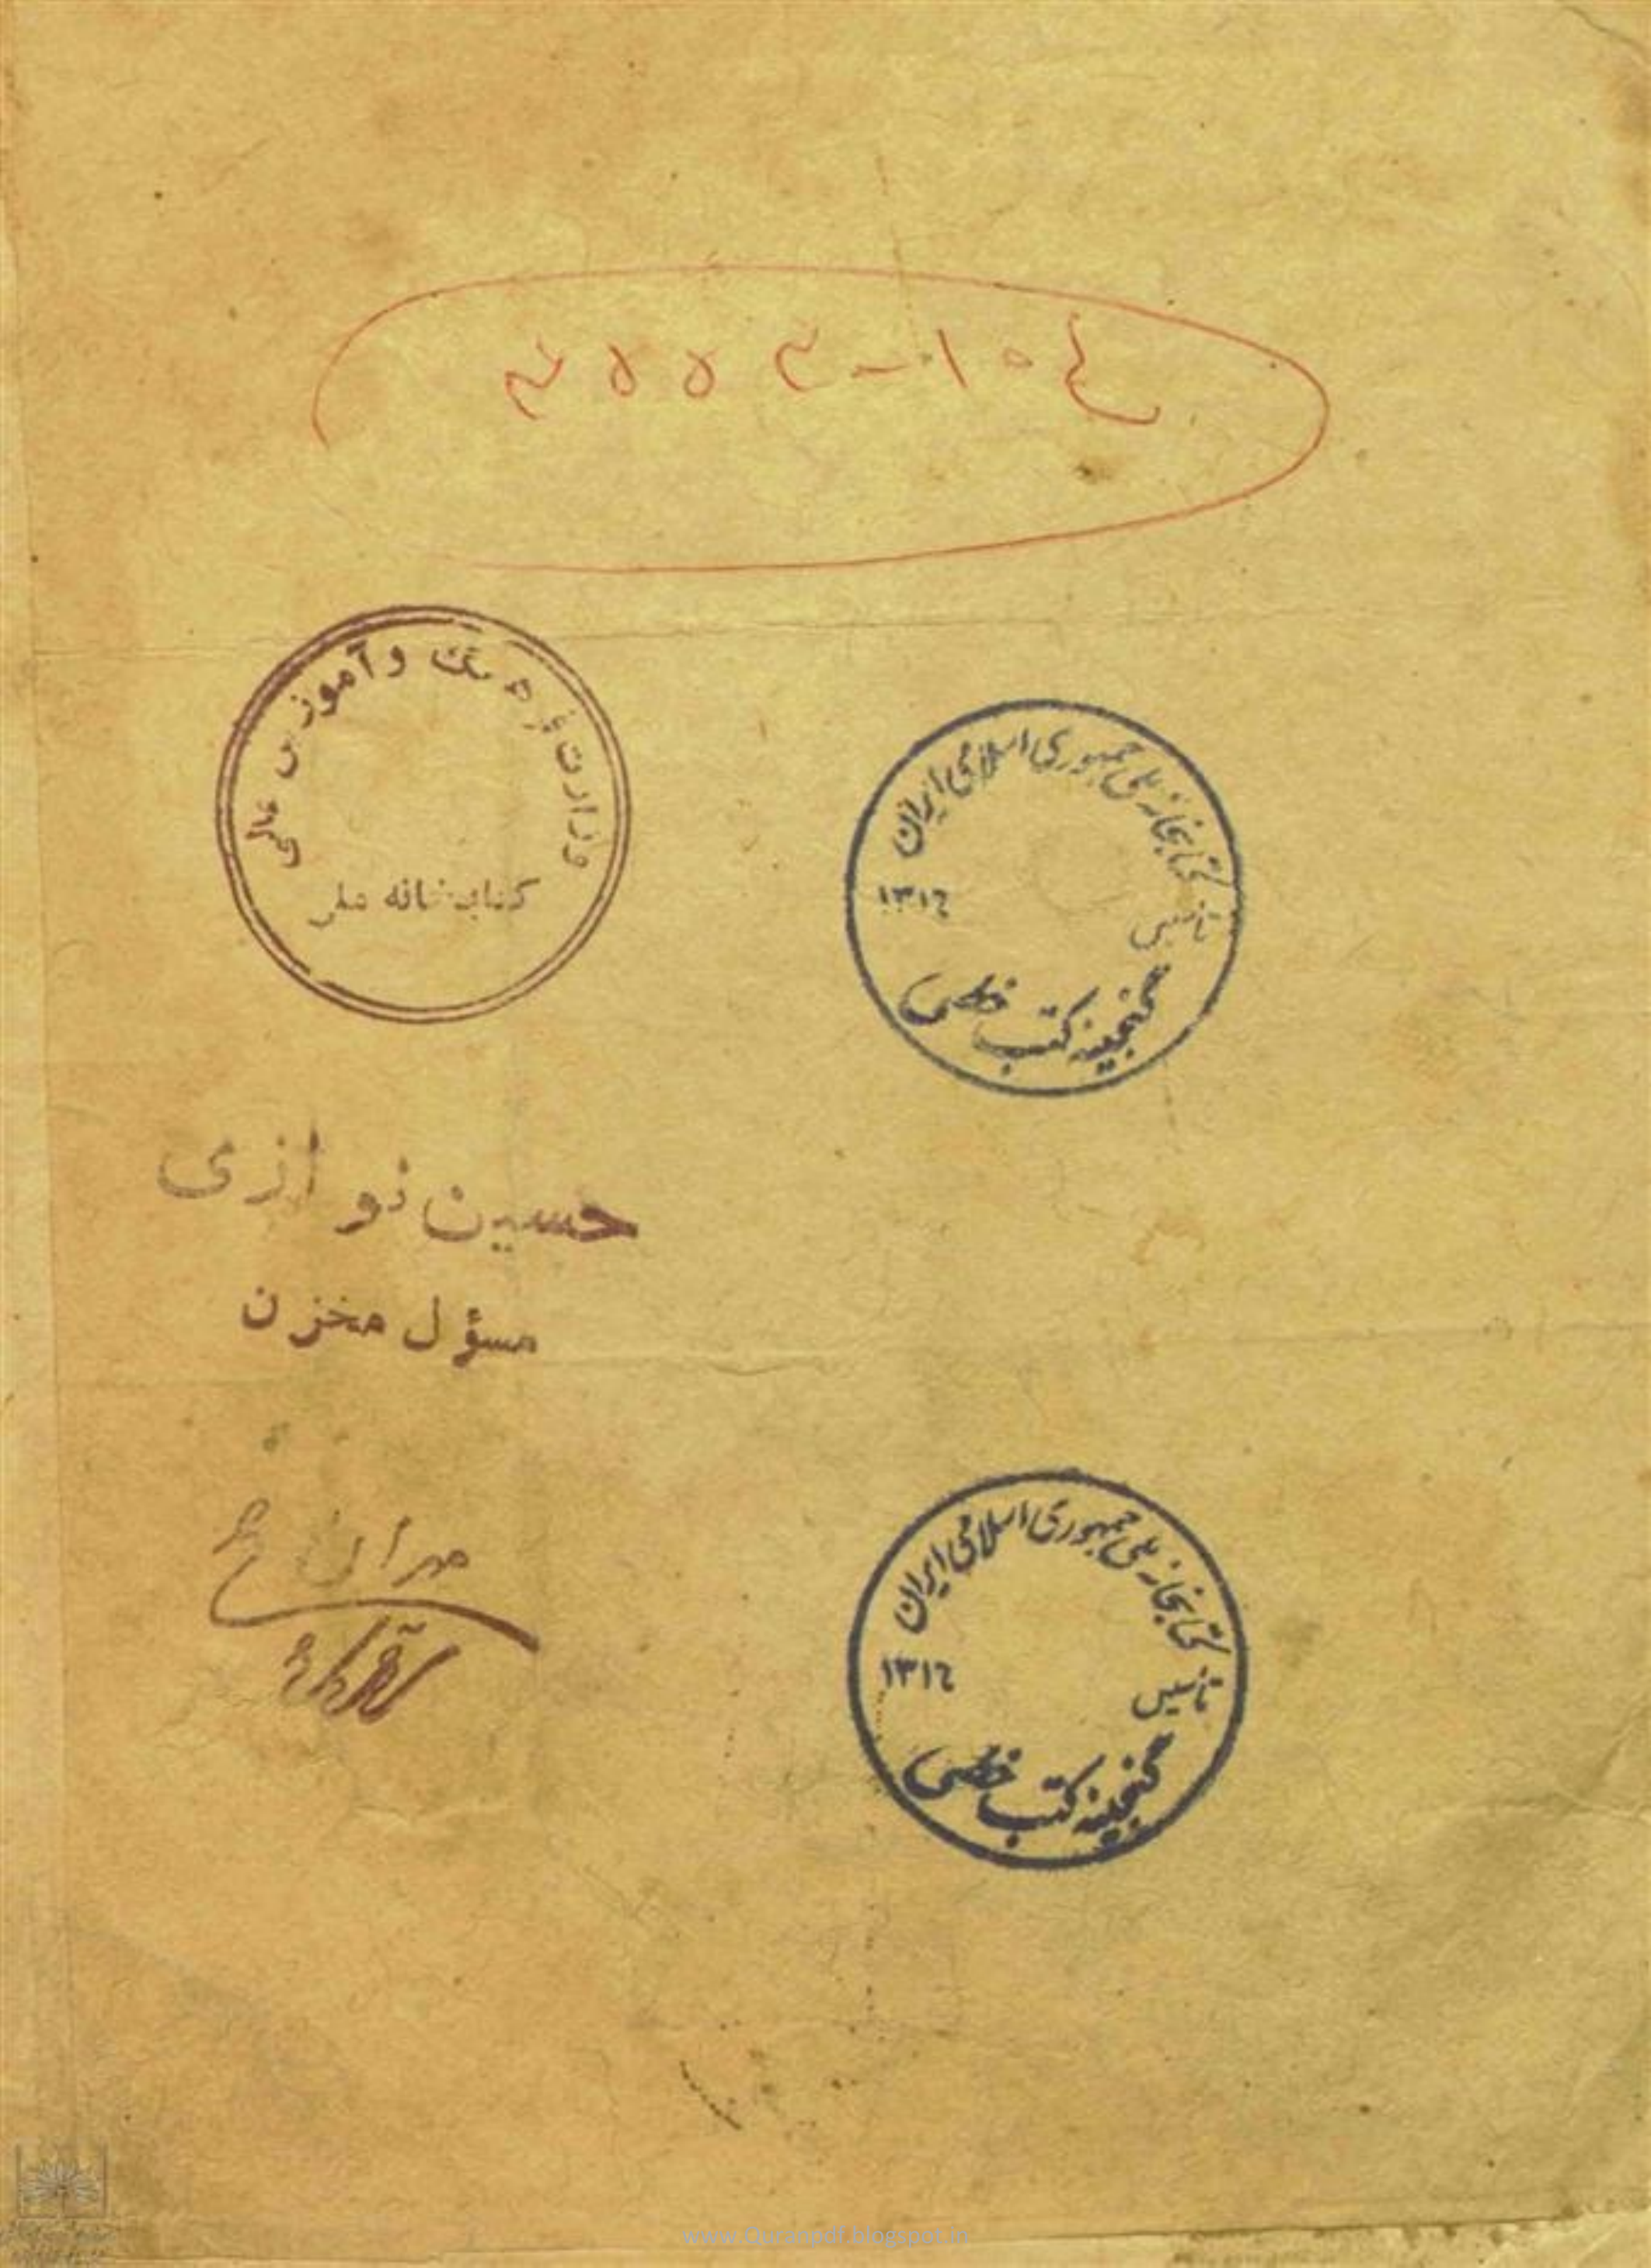 وزارت فرهنگ و آموزش عالی
کتابخانه ملی
کتابخانه ملی جمهوری اسلامی ایران
تاسیس ۱۳۱٦
گنجینه کتب خطی
حسین نوازی
مسؤل مخزن
کتابخانه ملی جمهوری اسلامی ایران
تاسیس ۱۳۱٦
گنجینه کتب خطی
www.Quranpdf.blogspot.in